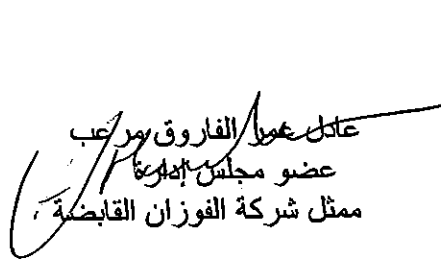 عادل عمر الفاروق مرعب
عضو مجلس إدارة
ممثل شركة الفوزان القابضة